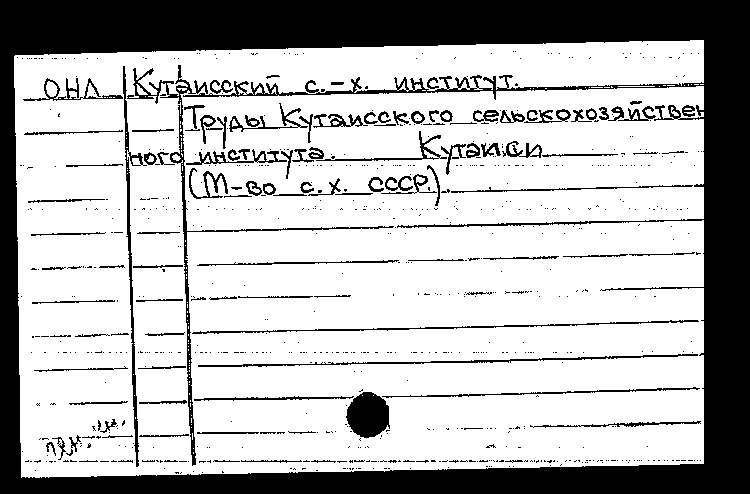 ОНЛ Кутаисский с.-х. институт.
Труды Кутаисского сельскохозяйствен
ного института. Кутаиси
(М-во с.х. СССР).